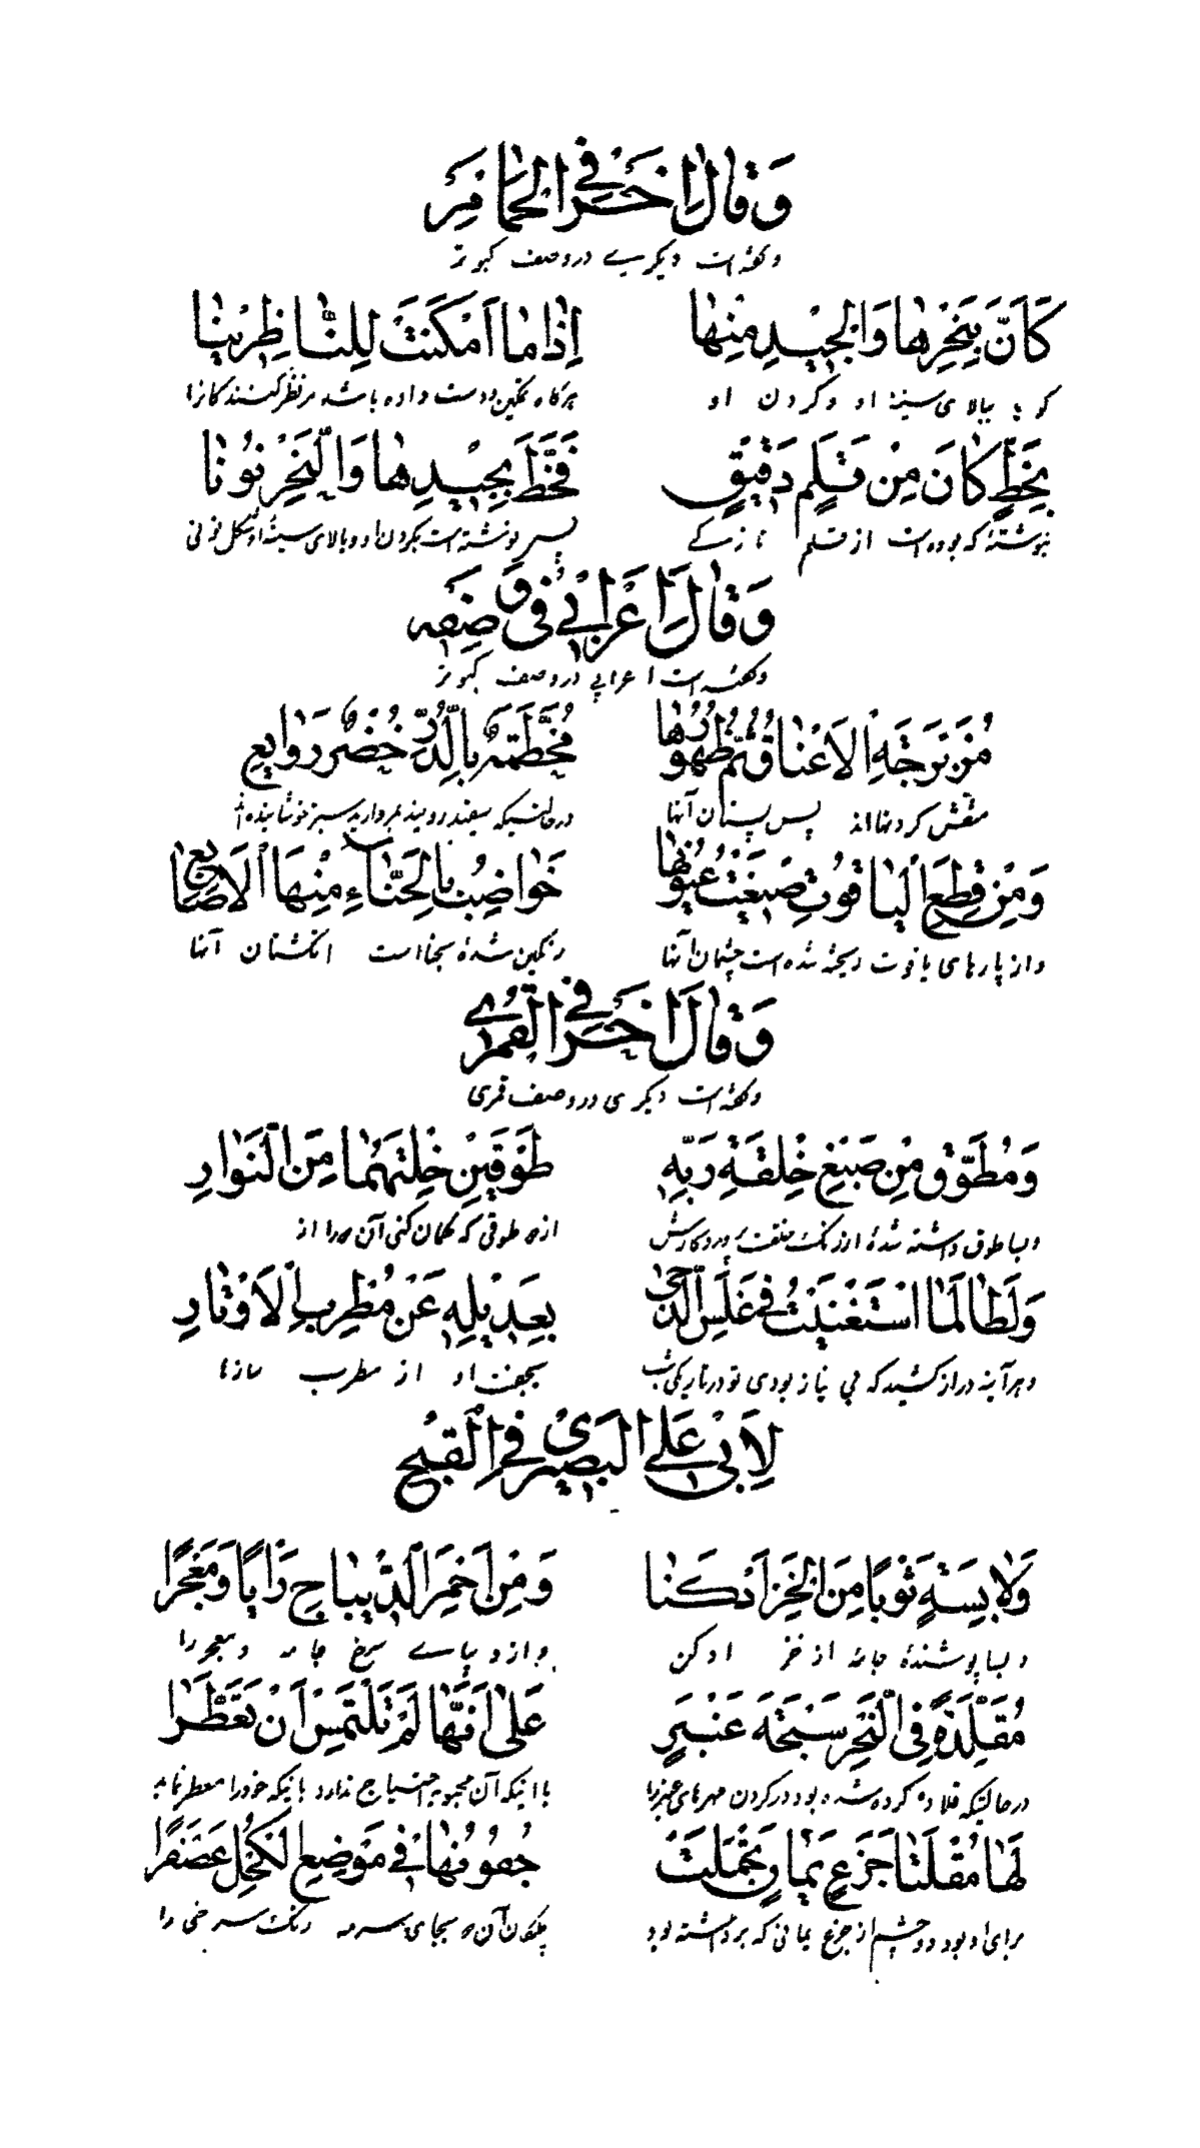 وَقَالَ اٰخَرُ فِي الْحَمَائِمِ
وگفته است دیگرے در وصف کبوتر
كَاَنَّ بِنَحْرِهَا وَالْجِيْدِ مِنْهَا اِذَا مَا اَمْكَنَتْ لِلنَّاظِرِيْنَا
گویا ببالای سینۀ او و گردن او هرگاه تمکین دست داده باشد مر نظر کنندگانرا
بِخَطٍّ كَانَ مِنْ قَلَمٍ دَقِيْقٍ فَخَطَّ بِجِيْدِهَا وَالنَّحْرِ نُوْنَا
نبوشتۀ که بوده است از قلم نازکے پس نوشته است بگردن او و بالای سینۀ او شکل نونی
وَقَالَ اَعْرَابِيٌّ فِيْ وَصْفِهِ
وگفته است اعرابی در وصف کبوتر
مُزَبْرَجَةِ الْاَعْنَاقِ نُمْرٌ ظُهُوْرُهَا مُخَطَّمَةٌ بِالدُّرِّ خُضْرٌ رَوَايِعُ
منقش گردنها اند پس پشتان آنها در حالیکه سفید رو بیند بمروارید سبز خوشاینده
وَمِنْ قِطَعِ الْيَاقُوْتِ صِيْغَتْ عُيُوْنُهَا خَوَاضِبُ بِالْحِنَّاءِ مِنْهَا الْاَصَابِعُ
و از پارهای یاقوت ریخته شده است چشمان آنها رنگین شدۀ بحنا است انگشتان آنها
وَقَالَ اٰخَرُ فِي الْقُمْرِيْ
وگفته است دیگری در وصف قمری
وَمُطَوَّقٍ مِنْ صَبْغِ خِلْقَةِ رَبِّهِ طَوْقَيْنِ خِلْتَهُمَا مِنَ النَّوَارِ
وبسا طوق داشته شدۀ از رنگ خلقت پروردگارش دو طوقی که گمان کنی آن را از
وَلَطَالَمَا اسْتَغْنَيْتُ فِيْ غَلَسِ الدُّجٰى بِعَدِيْلِهِ عَنْ مُطْرِبِ الْاَوْتَارِ
وهر آینه دراز کشید که بی نیاز بودی تو در تاریکی شب بجفت او از مطرب سازها
لِاَبِيْ عَلِيٍّ الْبَصِيْرِيْ فِي الْقَبْجِ
وَلَابِسَةٍ ثَوْبًا مِنَ الْخَزِّ اَدْكَنَا وَمِنْ اَحْمَرِ الدِّيْبَاجِ رَانًا وَمِعْجَرًا
وبسا پوشندۀ جامۀ از خز ادکن و از دیبای سرخ جامه و معجر را
مُقَلَّدَةٍ فِي النَّحْرِ سُبْحَةَ عَنْبَرٍ عَلٰى اَنَّهَا لَمْ تَلْتَمِسْ اَنْ تَعَطَّرَا
در حالیکه قلاده کرده شده بود در گردن مهرهای عنبر را با اینکه آن محبوبه احتیاج ندارد باینکه خود را معطر نماید
لَهَا مُقْلَتَا جَزْعٍ يَمَانٍ تَحَمَّلَتْ جُفُوْنُهَا فِيْ مَوْضِعِ الْكُحْلِ عُصْفُرًا
برای او بود دو چشم از جزع یمانی که برداشته بود پلکون آن بجای سرمه رنگ سرخی را